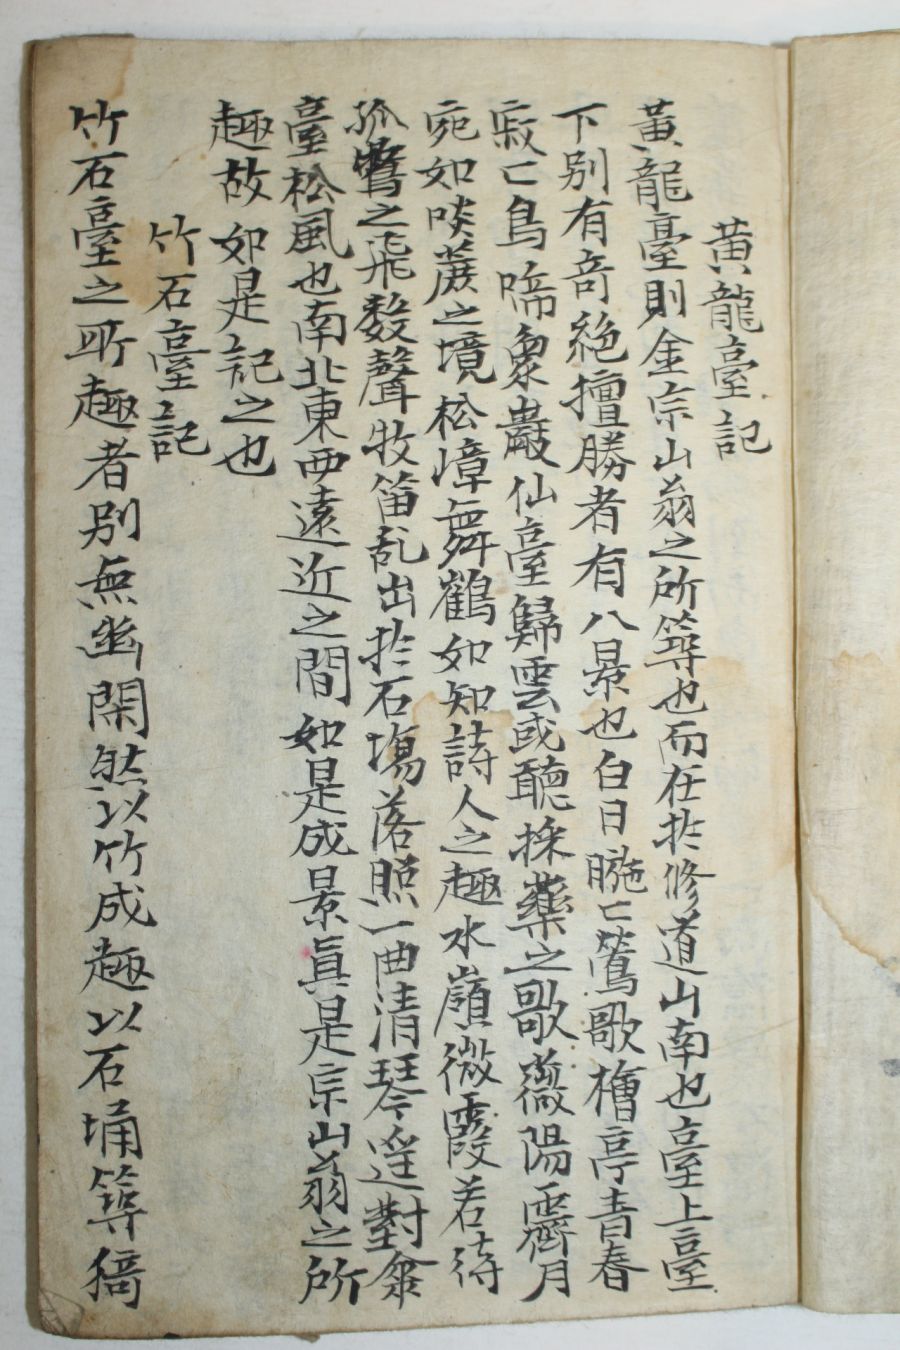 黃龍臺記
黃龍臺則金宗山翁之所築也而在於修道山南也臺上臺
下別有奇絶擅勝者有八景也白日晼〻鶯歌檜亭青春
寂〻鳥啼象巖仙臺歸雲或聽採藥之歌微陽霽月
宛如啖蔗之境松嶂舞鶴如知詩人之趣水嶺微霞若待
孤鶩之飛數聲牧笛乱出於石塲落照一曲清琴遥對
臺松風也南北東西遠近之間如是成景眞是宗山翁之所
趣故如是記之也
竹石臺記
竹石臺之所趣者別無幽閑然以竹成趣以石埇築